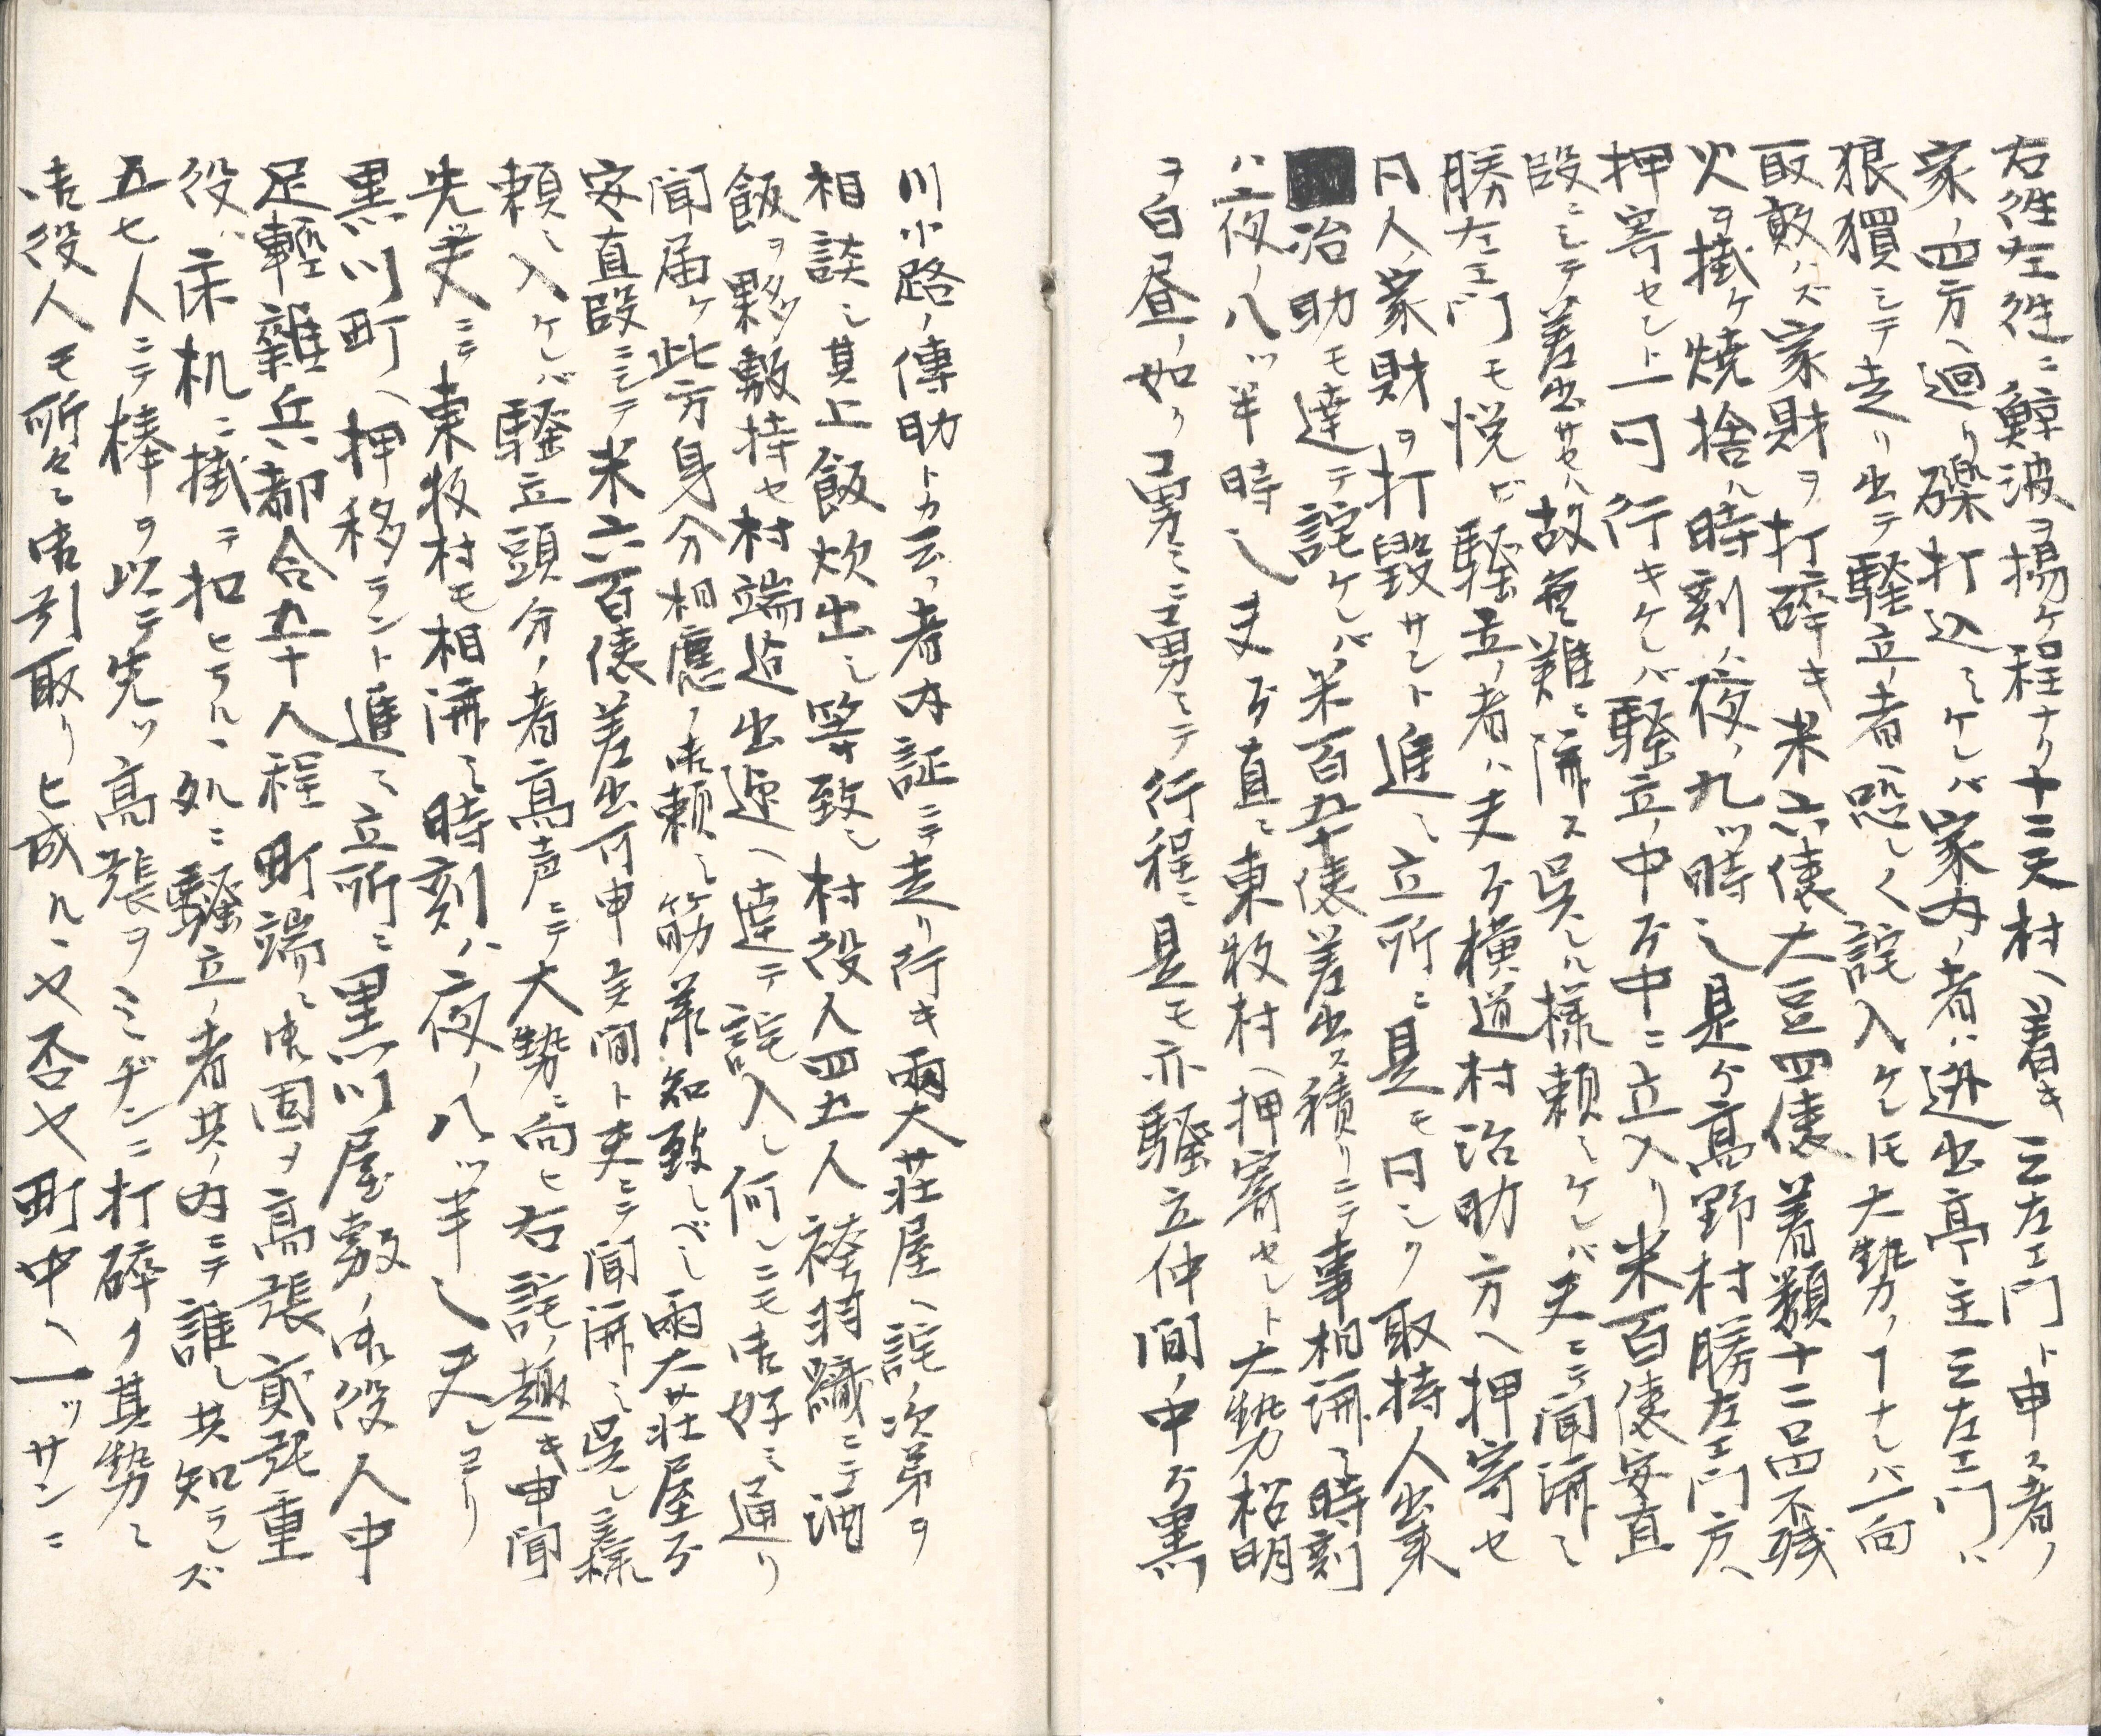 右徃左徃ニ鯨波ヲ揚ケ程ナク十二天村ヘ着キ三左エ門ト申ス者ノ
家ノ四方ヘ廻リ礫打込ミケレバ家内ノ者ハ迯出亭主三左エ門ハ
狼狽シテ走リ出テ騒立ノ者ヘ恐しく詫入ケレ𪜈大勢ノ𪜈ナレバ一向
取敢ハズ家財ヲ打碎キ米六俵大豆四俵着類十二品不残
火ヲ掛ケ焼捨ル時刻ハ夜ノ九ツ時也是ゟ高野村勝左エ門方ヘ
押寄セント一同行キケレバ騒立ノ中ゟ中ニ立入リ米百俵安直
段ニシテ差出サセル故無難ニ濟ス呉レル様頼ミケレバ夫ニテ聞濟ミ
勝左エ門モ悦ビ騒立ノ者ハ夫ゟ横道村治助方ヘ押寄セ
同人家財ヲ打毀サント進ミ立所ニ是モ同シク取持人出来
治助モ達テ詫ケレバ米百五十俵差出ス積リニテ事相濟ミ時刻
ハ夜ノ八ツ半時也夫ゟ直ニ東牧村ヘ押寄セント大勢松明
ヲ白昼ノ如ク勇ミニ勇ミテ行程ニ是モ亦騒立仲間ノ中ゟ黒
川小路ノ傳助トカ云フ者内証ニテ走リ行キ兩大荘屋ヘ詫ノ次第ヲ
相談シ其上飯炊出シ等致シ村役人四五人袴羽織ニテ酒
飯ヲ夥敷持セ村端迠出迎ヘ達テ詫入レ何レニモ御好ミ通リ
聞届ケ此方身分相應ノ御頼ミ筋承知致シベシ兩大荘屋ゟ
安直段ニシテ米六百俵差出可申間ト夫ニテ聞濟ミ呉レ候様
頼ミ入ケレバ騒立頭分ノ者高声ニテ大勢ニ向ヒ右詫ノ趣キ申聞
先ツ夫ニテ東牧村モ相濟ミ時刻ハ夜ノ八ツ半也夫レヨリ
黒川町ヘ押移ラント進ミ立所ニ黒川屋敷ノ御役人中
足輕雜兵都合五十人程町端ニ御固メ高張貳張重
役ハ床机ニ掛テ扣ヒラル処ニ騒立ノ者其内ニテ誰レ共知ラレズ
五七人ニテ棒ヲ以テ先ツ高張ヲミヂンニ打碎ク其勢ニ
御役人モ所々ニ御引取リヒ成ルヤ否ヤ町中ヘ一ッサンニ